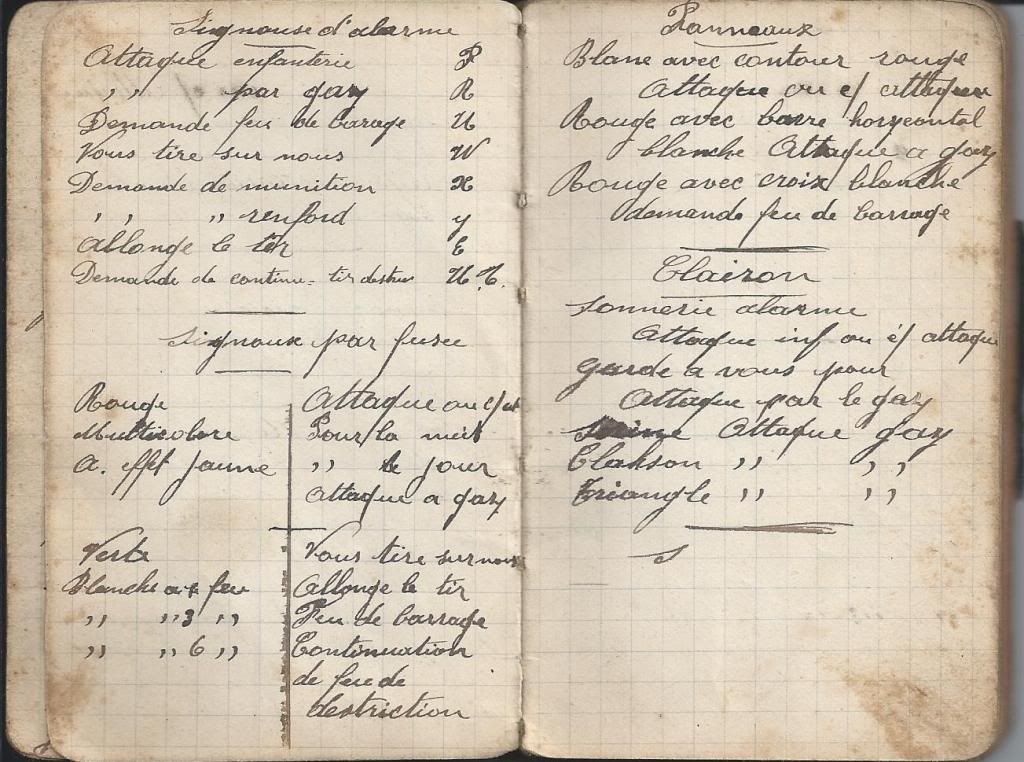 Signause d'alarme
Attaque enfanterie P
,, par gazy R
Demande feu de barage U
Vous tire sur nous W
Demande de munition X
,, ,, renford y
Allonge le tir E
Demande de continu- tir destru H.H.
Signoux par fusee
Rouge Attaque ou c/at
Multicolore Pour la nuit
A. effet Jaune ,, le jour
Attaque a gazy
Verte Vous tire sur nous
Blanche a feu Allonge le tir
,, ,, 3 ,, Feu de barrage
,, ,, 6 ,, Continuation
de feu de
destriction
Panneaux
Blanc avec contour rouge
Attaque ou c/ attaque
Rouge avec barre horyzontal
blanche Attaque a gazy
Rouge avec croix blanche
demande feu de barrage
Clairon
Sonnerie alarme
Attaque inf ou c/ attaque
garde a vous pour
Attaque par le gazy
Attaque gazy
Clakson ,, ,,
Triangle ,, ,,
S